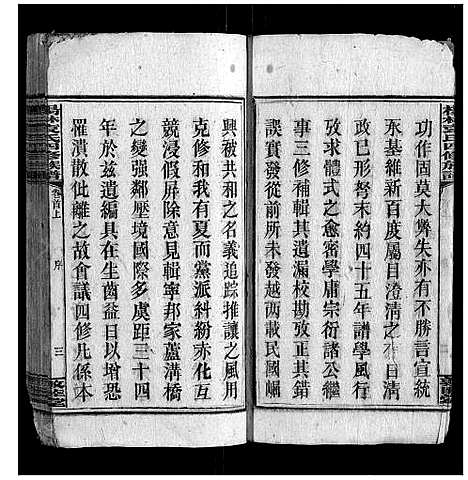 功作固莫大弊失亦有不勝言宣統
永基維新百度屬目澄清之年日清
政已形弩末約四十五年譜學風行
攷求體式之愈密學庸宗衍諸公繼
事三修輯其遺漏校勘攷正其錯
誤實發從前所未發越兩載民國嗣
興被共和之名義追踪推讓之風用
克修和我有夏而黨派糾紛亦化互
競浸假屏除意見輯寧邦家蘆溝橋
之變强鄰壓境國際多虞距三十四
年於兹遺編具在生齒益目以增恐
罹潰散仳離之故會議四修凡係本
四修族譜
卷首上
序
三